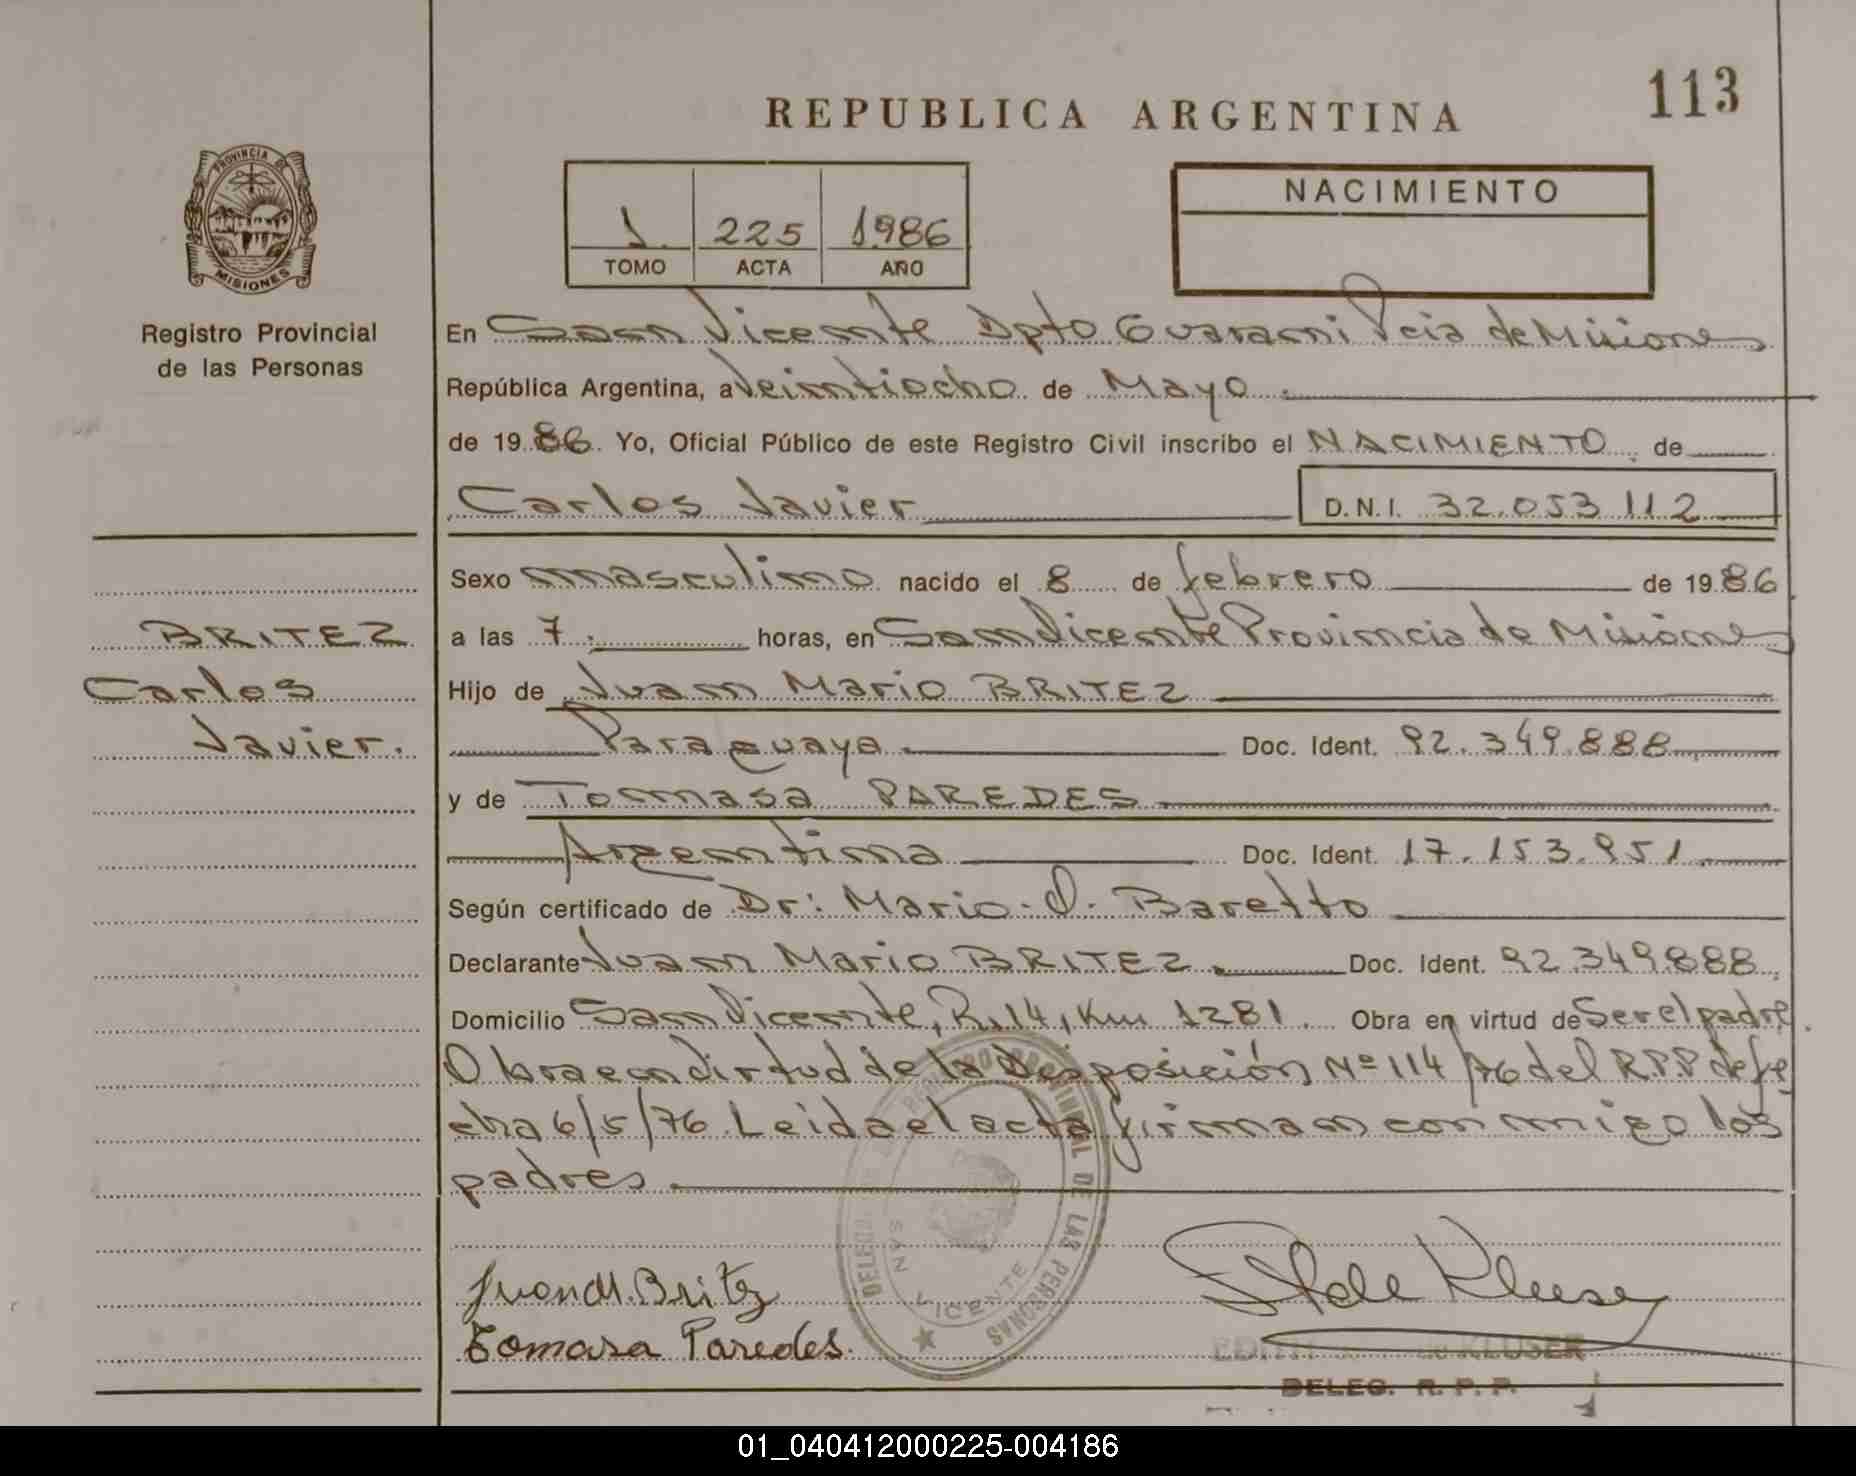 113
REPUBLICA ARGENTINA
PROVINCIA DE
MISIONES
Registro Provincial
de las Personas
1. 225 1986
TOMO ACTA AÑO
NACIMIENTO
En San Vicente Dpto Guarani Pcia de Misiones
República Argentina, a Veintiocho de Mayo.
de 1986. Yo, Oficial Público de este Registro Civil inscribo el NACIMIENTO de
Carlos Javier D.N.I. 32.053.112
Sexo masculino nacido el 8 de febrero de 1986
BRITEZ
Carlos
Javier.
a las 7. horas, en San Vicente Provincia de Misiones
Hijo de Juan Mario BRITEZ
Paraguaya. Doc. Ident. 92.349.888
y de Tomasa PAREDES.
Argentina Doc. Ident. 17.153.951.
Según certificado de Dr: Mario. O. Baretto
Declarante Juan Mario BRITEZ. Doc. Ident. 92.349.888.
Domicilio San Vicente, R. 14, Km 1281. Obra en virtud de Ser el padre.
Obra en virtud de la Disposición Nº 114/76 del R.P.P de fe
cha 6/5/76. Leida el acta firman conmigo los
padres.
DELEG REGISTRO PROVINCIAL DE LAS PERSONAS
SAN VICENTE
Juan M. Britez
Tomasa Paredes.
EDITH KLUSER
DELEG. R. P. P.
01_040412000225-004186